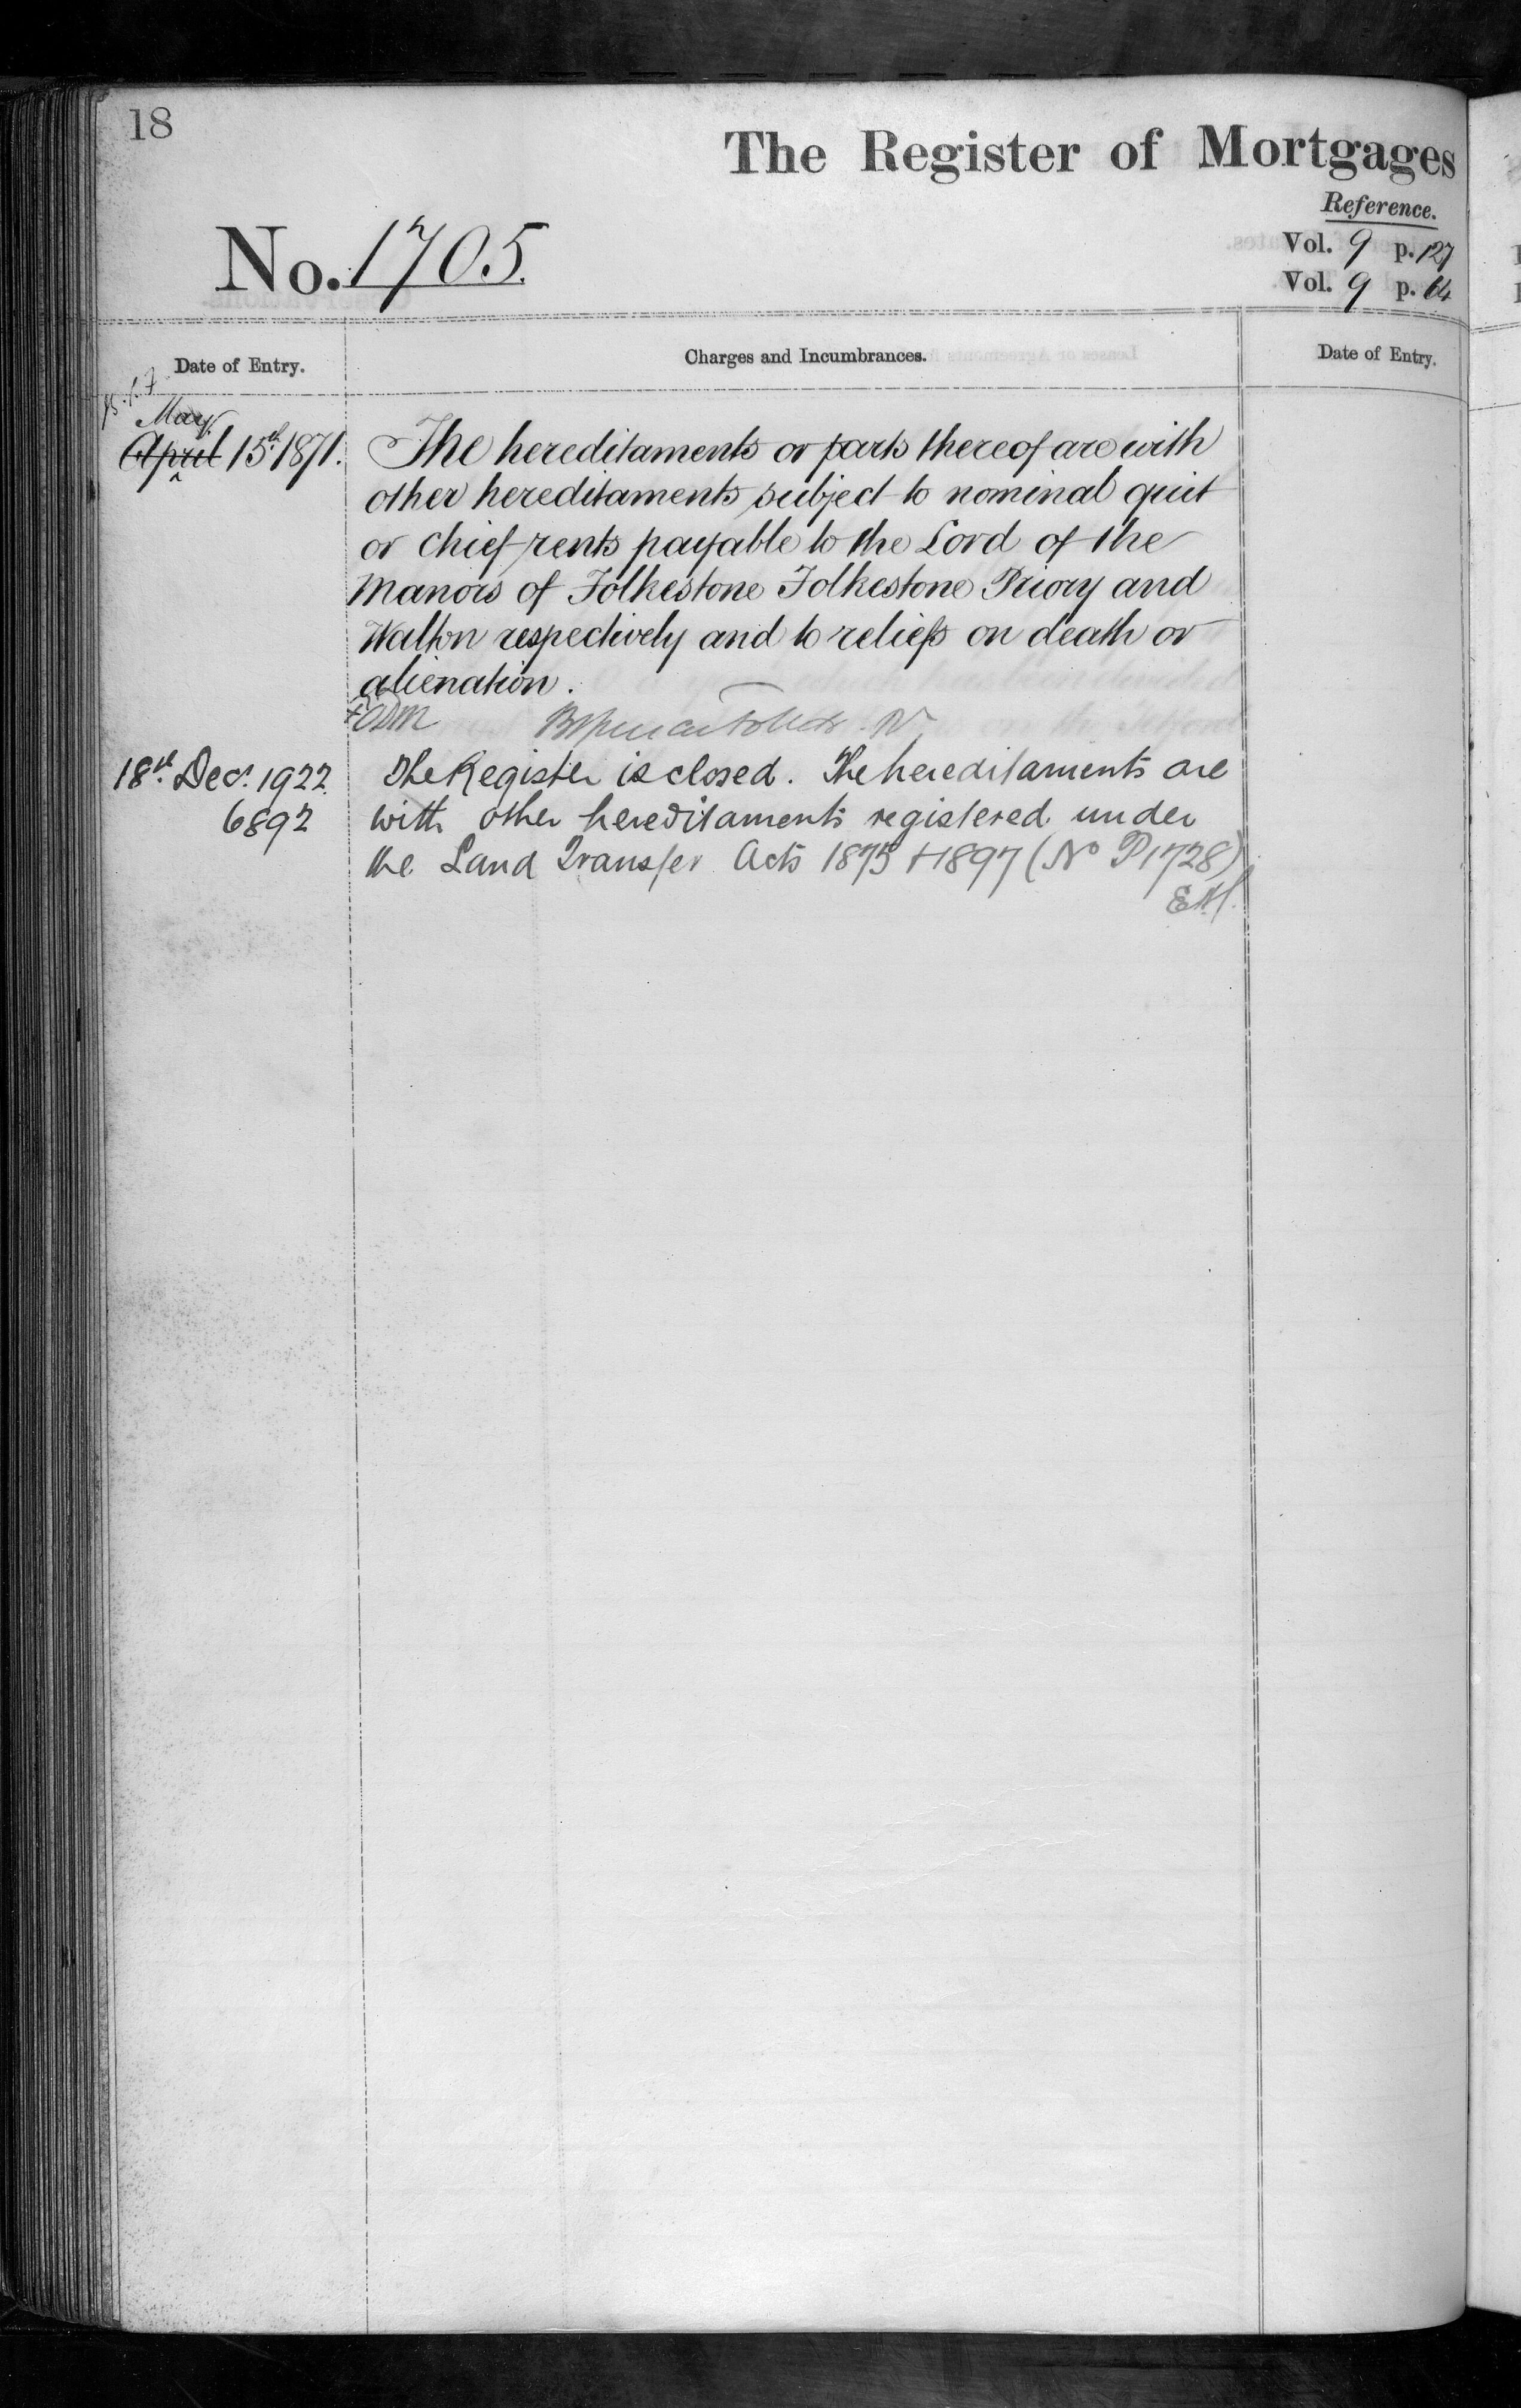 18
The Register of Mortgages
Reference.
No. 1705.
Vol. 9 p. 127
Vol. 9 p. 64
Date of Entry.
Charges and Incumbrances.
Date of Entry.
May
April 15th 1871.
The hereditaments or parts thereof are with
other hereditaments subject to nominal quit
or chief rents payable to the Lord of the
Manors of Folkestone Folkestone Priory and
Walton respectively and to reliefs on death or
alienation.
18th Decr. 1922.
6892
The Register is closed. The hereditaments are
with other hereditaments registered under
the Land Transfer Acts 1875 + 1897 (No P1728)